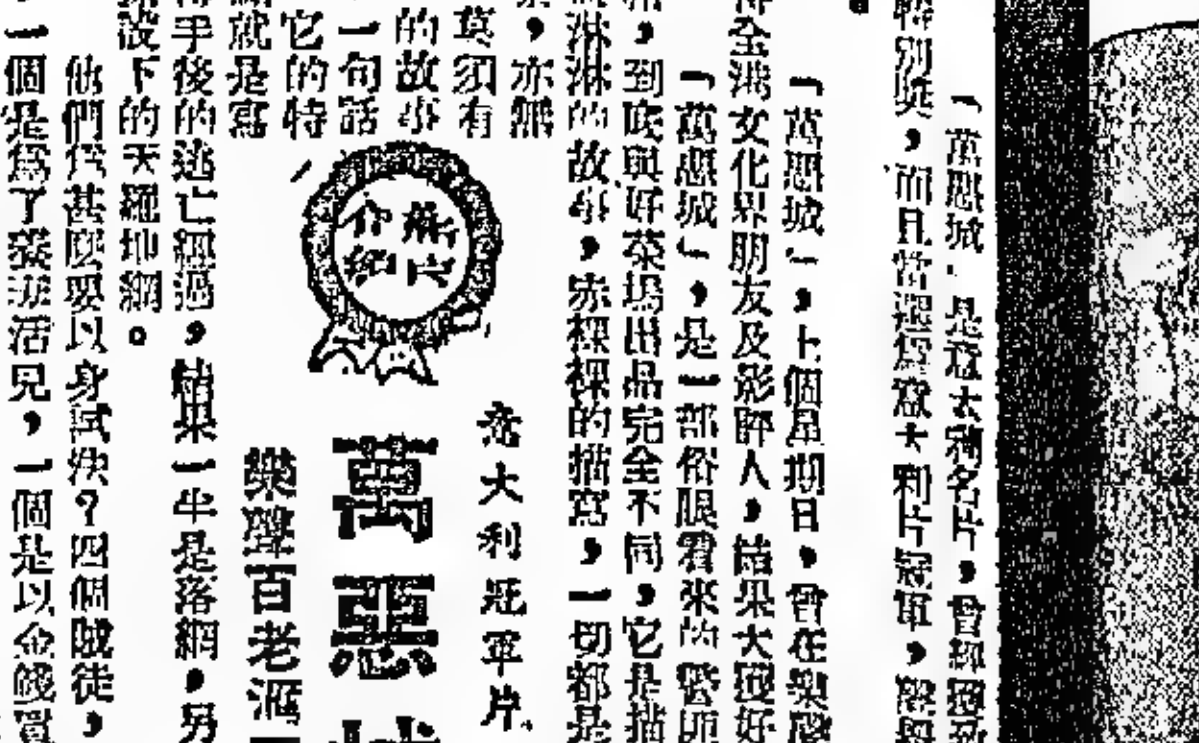 「萬惡城」是意大利名片，曾經獲
特別獎，而且當選為意大利片冠軍，
「萬惡城」，上個星期日，曾在樂聲
全港文化界朋友及影評人，結果大獲好
「萬惡城」，是一部俗眼看來的警匪
，到底與好萊塢出品完全不同，它是描
淋淋的故事，赤裸裸的描寫，一切都是
，亦無
莫須有
的故事
一句話
它的特
就是寫
新片
介紹
意大利冠軍片
萬惡城
樂聲百老滙
手後的逃亡經過，結果一半是落網，另
設下的天羅地網。
他們為甚麼要以身試法？四個賊徒，
一個是為了養活兒，一個是以金錢買